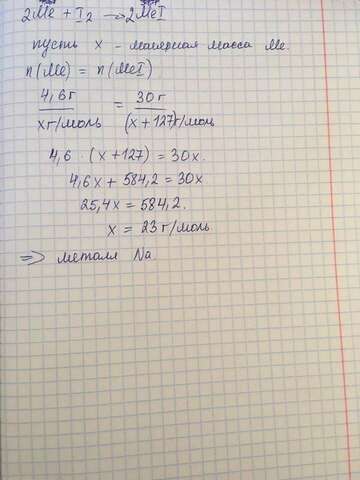 2Me + I₂ → 2MeI
пусть x - молярная масса Me.
n(Me) = n(MeI)
4,6г / x г/моль = 30г / (x + 127)г/моль
4,6 · (x + 127) = 30x.
4,6x + 584,2 = 30x
25,4x = 584,2.
x = 23 г/моль
=> металл Na.